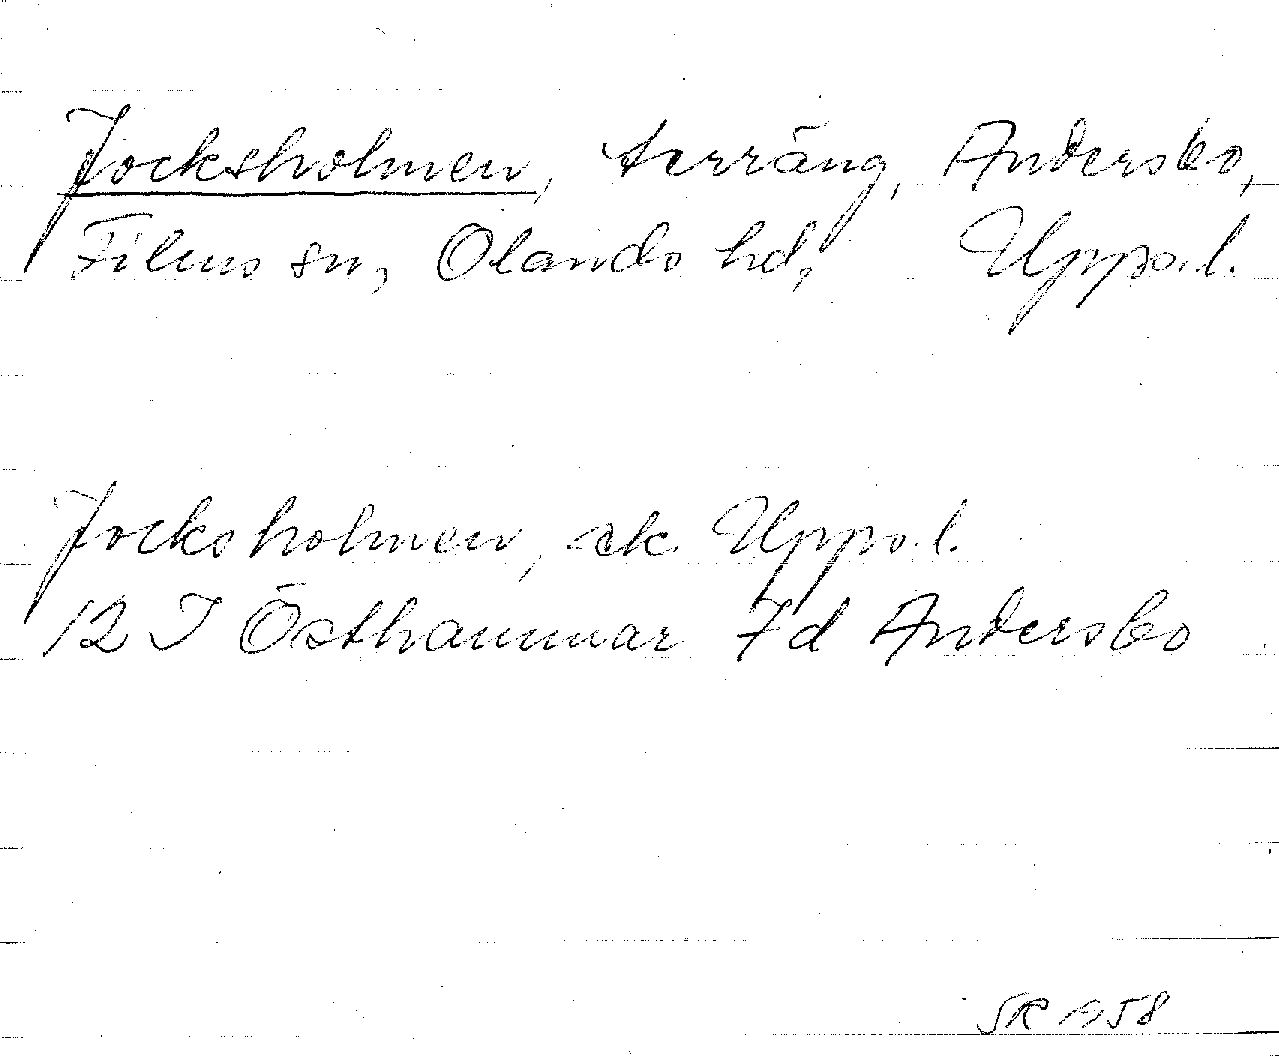 Jocksholmen, terräng, Andersbo,
Films sn, Olands hd, Upps.l.
Jocksholmen, ek. Upps.l.
12 I Östhammar 7d Andersbo
SR 1958